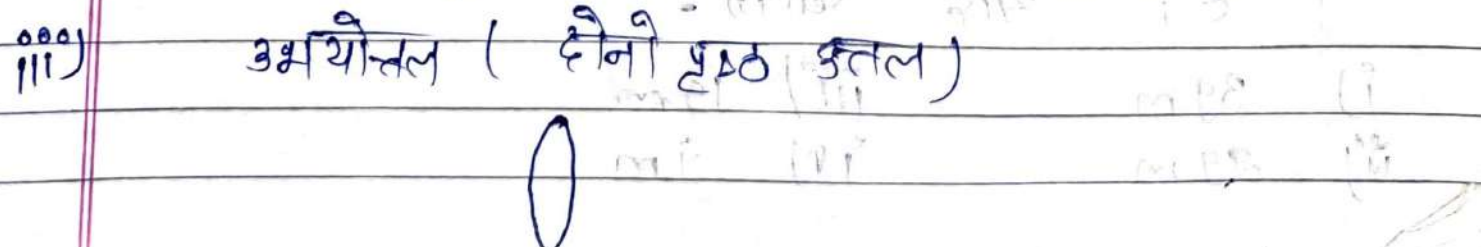 iii) उभयोत्तल ( दोनो पृष्ठ उत्तल)